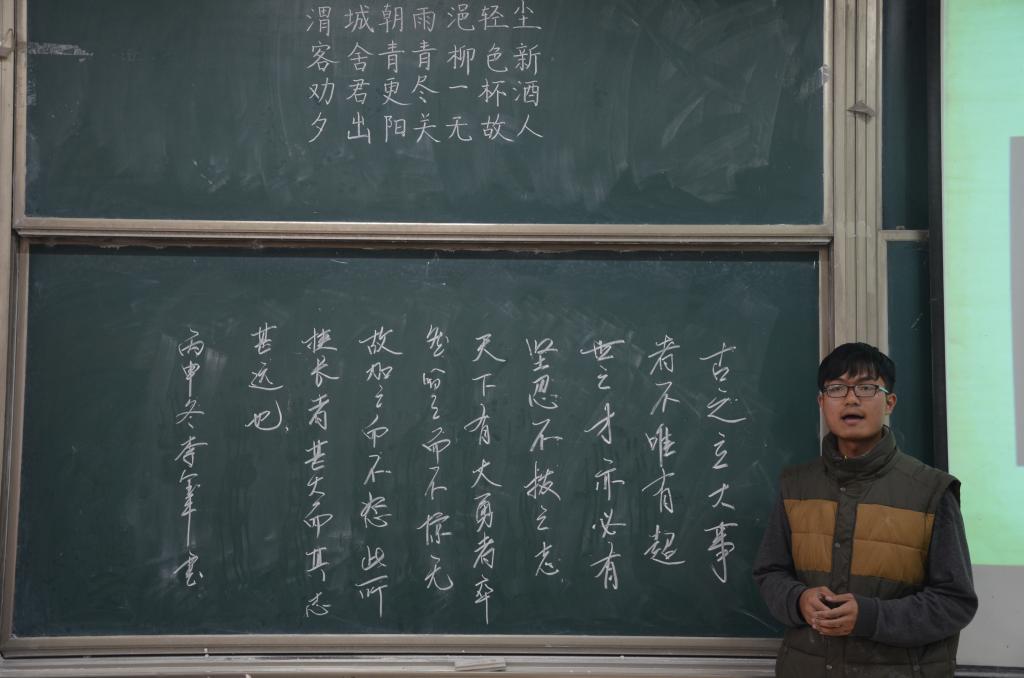 渭城朝雨浥轻尘
客舍青青柳色新
劝君更尽一杯酒
夕出阳关无故人
古之立大事
者不唯有超
世之才亦必有
坚忍不拔之志.
天下有大勇者卒
然临之而不惊无
故加之而不怒此所
挟长者甚大而其志
甚远也.
丙申冬李军书